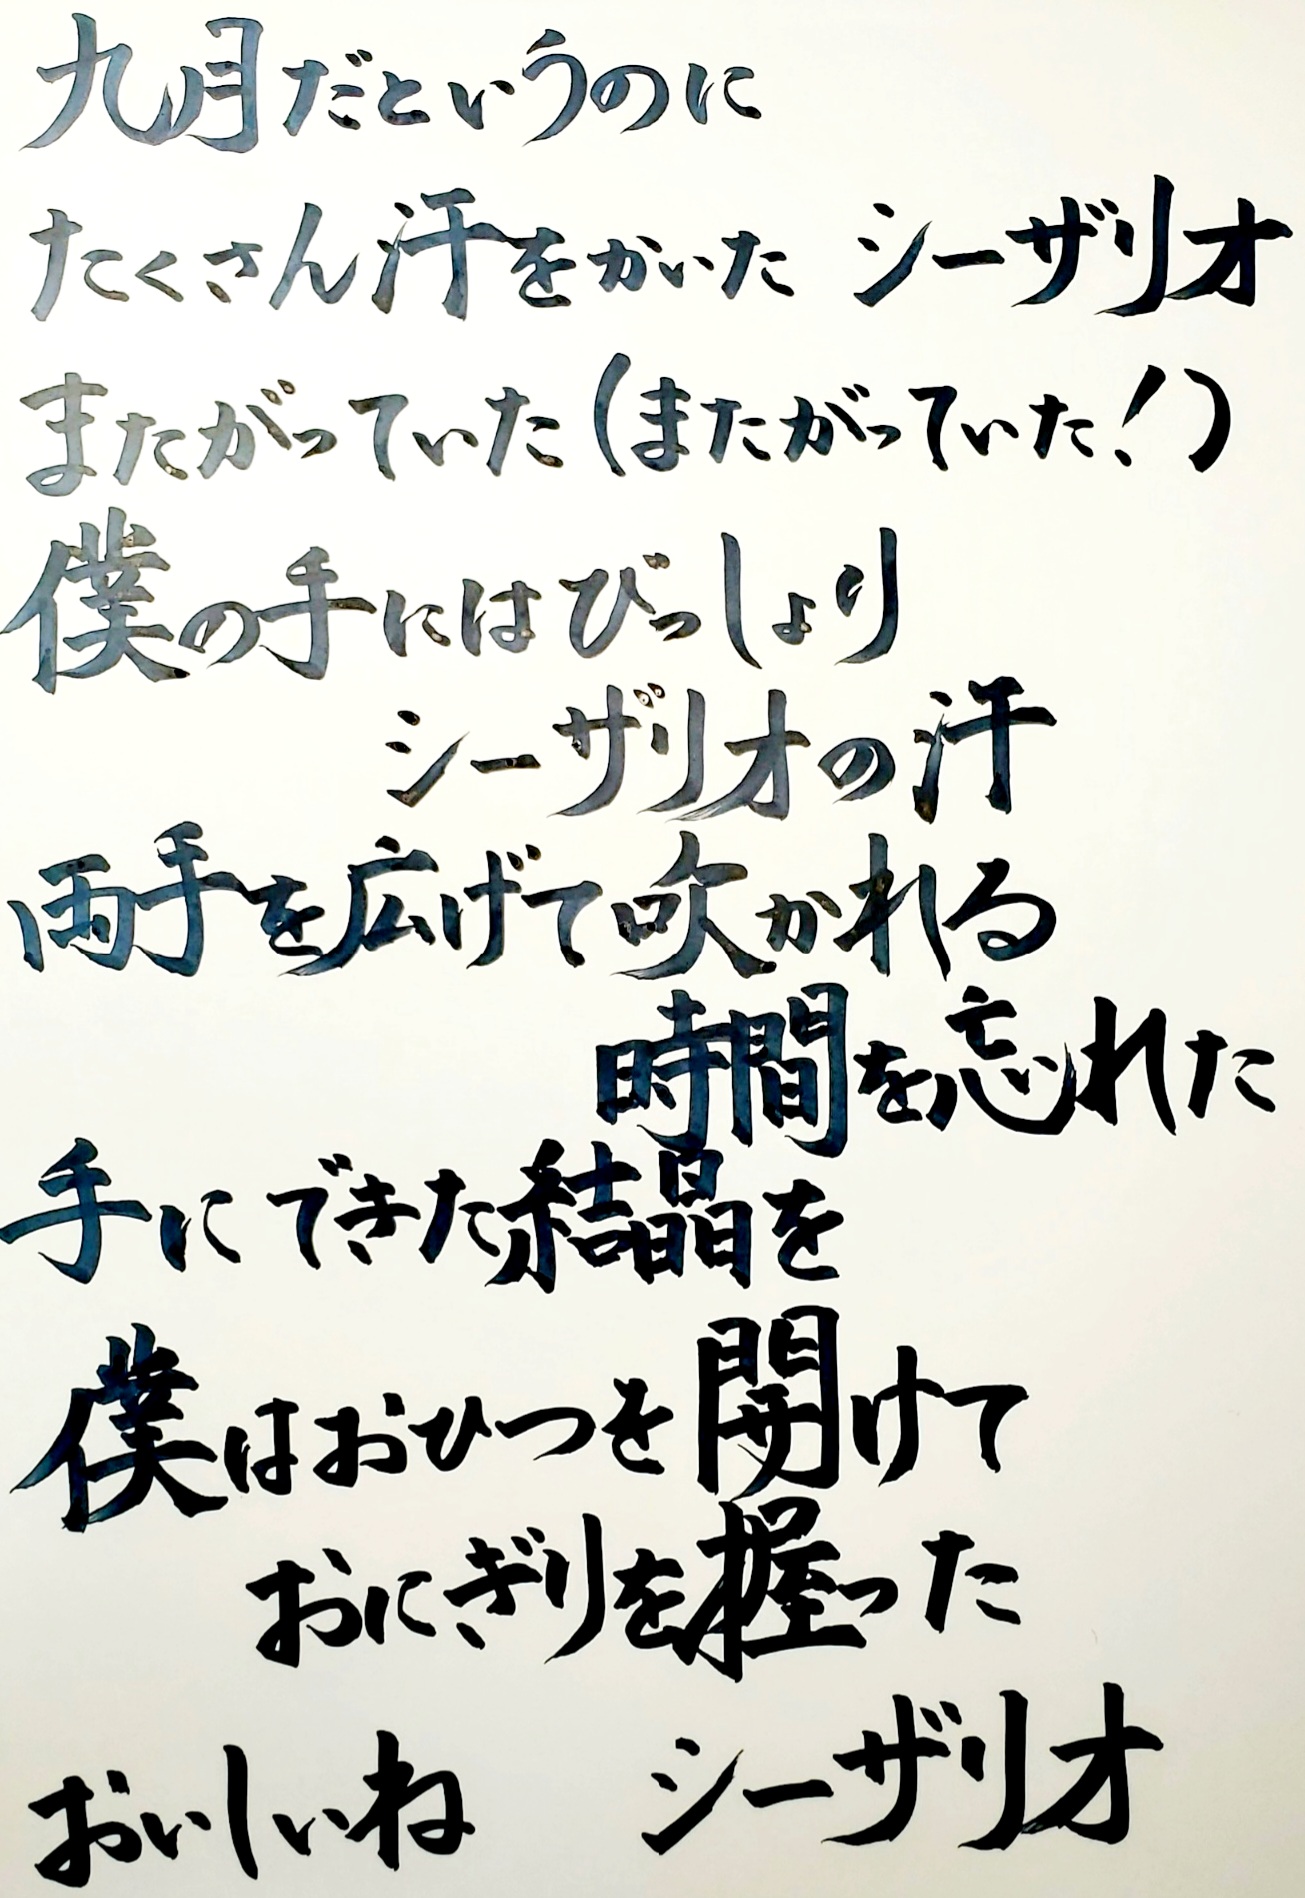 九月だというのに
たくさん汗をかいた　シーザリオ
またがっていた(またがっていた!)
僕の手にはびっしょり
シーザリオの汗
両手を広げて吹かれる
時間を忘れた
手にできた結晶を
僕はおひつを開けて
おにぎりを握った
おいしいね　シーザリオ